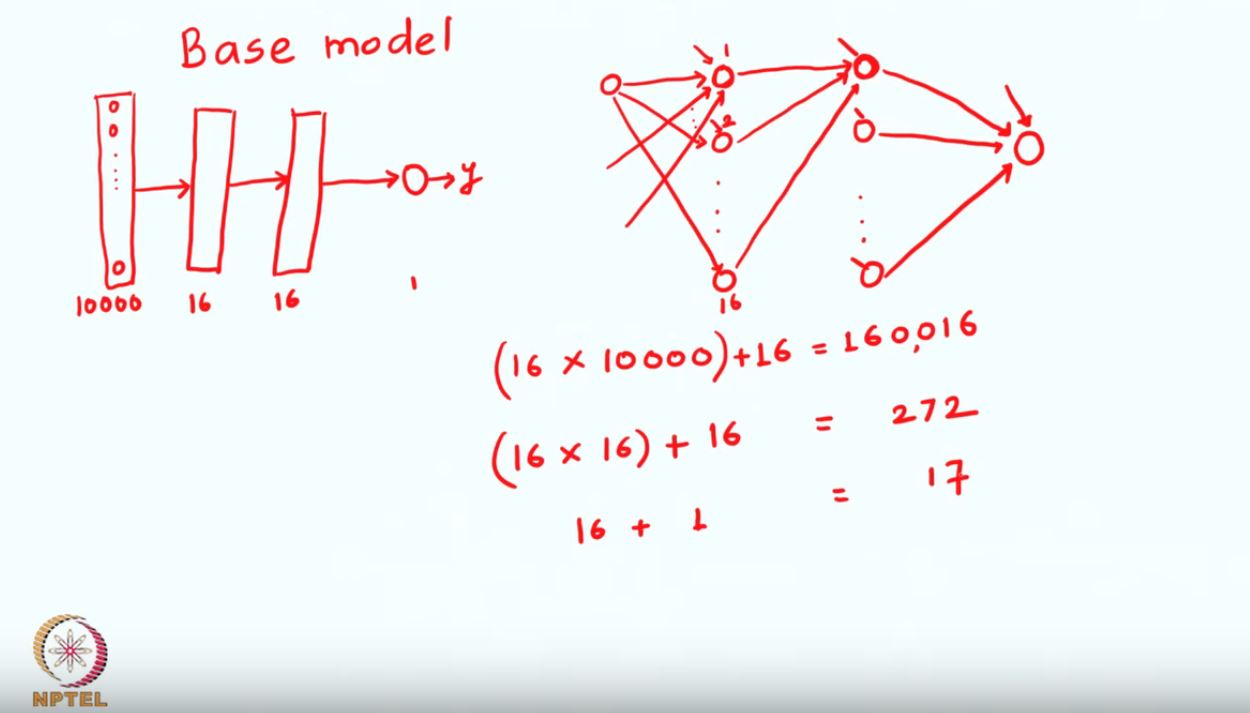 Base model
10000 16 16 1
y
1
2
16
(16 × 10000) + 16 = 160,016
(16 × 16) + 16 = 272
16 + 1 = 17
NPTEL